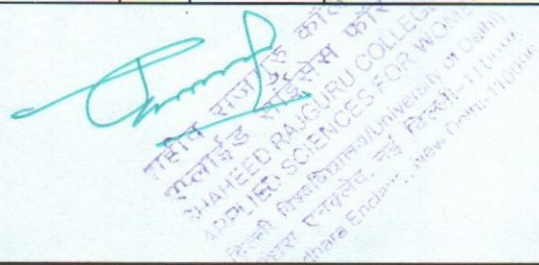 शहीद राजगुरु कॉले
एप्लाईड साईंसेस फॉर
SHAHEED RAJGURU COLLEGE
APPLIED SCIENCES FOR WOME
दिल्ली विश्वविद्यालय/University of Delhi
एनक्लेव, नई दिल्ली-110096
dhara Encla New Delhi-110096